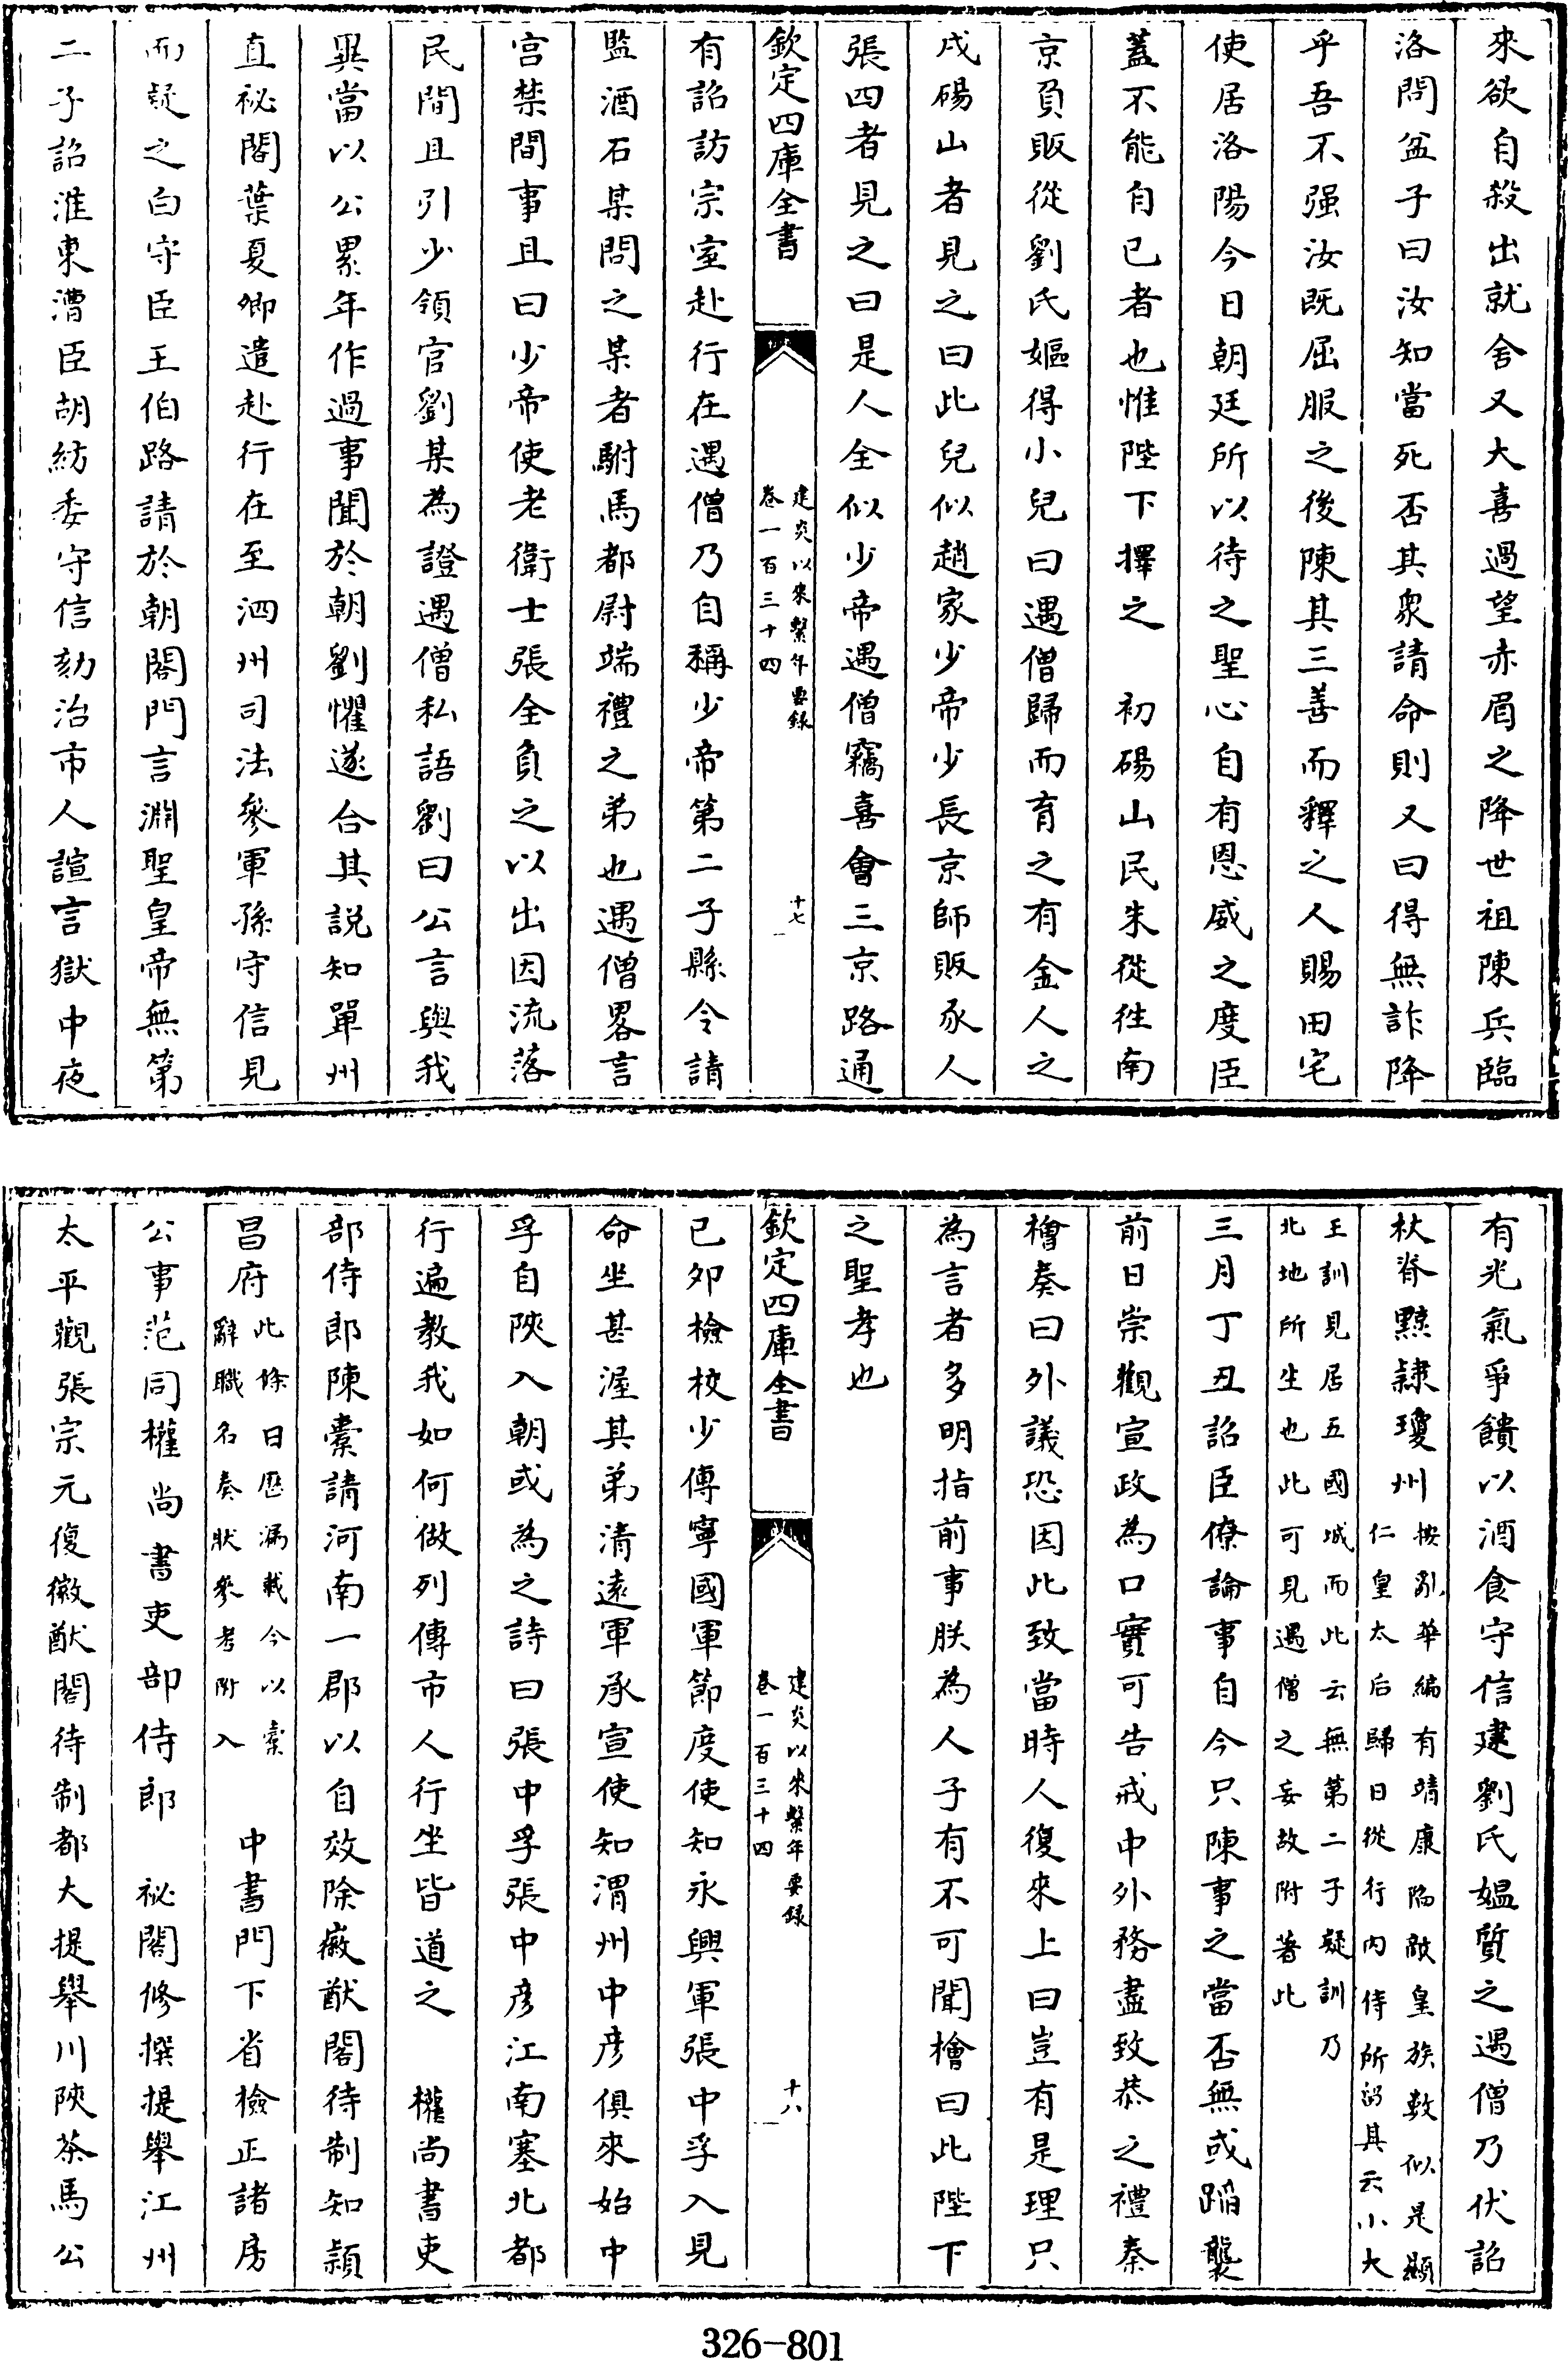 來欲自殺出就舍又大喜過望赤眉之降世祖陳兵臨
洛問盆子曰汝知當死否其衆請命則又曰得無詐降
乎吾不强汝既屈服之後陳其三善而釋之人賜田宅
使居洛陽今日朝廷所以待之聖心自有恩威之度臣
蓋不能自已者也惟陛下擇之　初碭山民朱從往南
京負販從劉氏嫗得小兒曰遇僧歸而育之有金人之
戍碭山者見之曰此兒似趙家少帝少長京師販豕人
張四者見之曰是人全似少帝遇僧竊喜會三京路通
欽定四庫全書
建炎以來繫年要録
卷一百三十四
十七
有詔訪宗室赴行在遇僧乃自稱少帝第二子縣令請
監酒石某問之某者駙馬都尉端禮之弟也遇僧畧言
宫禁間事且曰少帝使老衛士張全負之以出因流落
民間且引少領官劉某為證遇僧私語劉曰公言與我
異當以公累年作過事聞於朝劉懼遂合其説知單州
直祕閣葉夏卿遣赴行在至泗州司法參軍孫守信見
而疑之白守臣王伯路請於朝閤門言淵聖皇帝無第
二子詔淮東漕臣胡紡委守信劾治市人諠言獄中夜
有光氣爭饋以酒食守信建劉氏媪質之遇僧乃伏詔
杖脊黥隷瓊州按亂華編有靖康陷敵皇族數似是顯
仁皇太后歸日從行内侍所説其云小大
王訓見居五國城而此云無第二子疑訓乃
北地所生也此可見遇僧之妄故附著此
三月丁丑詔臣僚論事自今只陳事之當否無或蹈襲
前日崇觀宣政為口實可告戒中外務盡致恭之禮秦
檜奏曰外議恐因此致當時人復來上曰豈有是理只
為言者多明指前事朕為人子有不可聞檜曰此陛下
之聖孝也
欽定四庫全書
建炎以來繫年要録
卷一百三十四
十八
已夘檢校少傅寧國軍節度使知永興軍張中孚入見
命坐甚渥其弟清遠軍承宣使知渭州中彦俱來始中
孚自陝入朝或為之詩曰張中孚張中彦江南塞北都
行遍教我如何做列傳市人行坐皆道之　權尚書吏
部侍郎陳槖請河南一郡以自效除徽猷閣待制知潁
昌府此條日厯漏載今以槖
辭職名奏狀參考附入　中書門下省檢正諸房
公事范同權尚書吏部侍郎　祕閣修撰提舉江州
太平觀張宗元復徽猷閣待制都大提舉川陝茶馬公
326-801